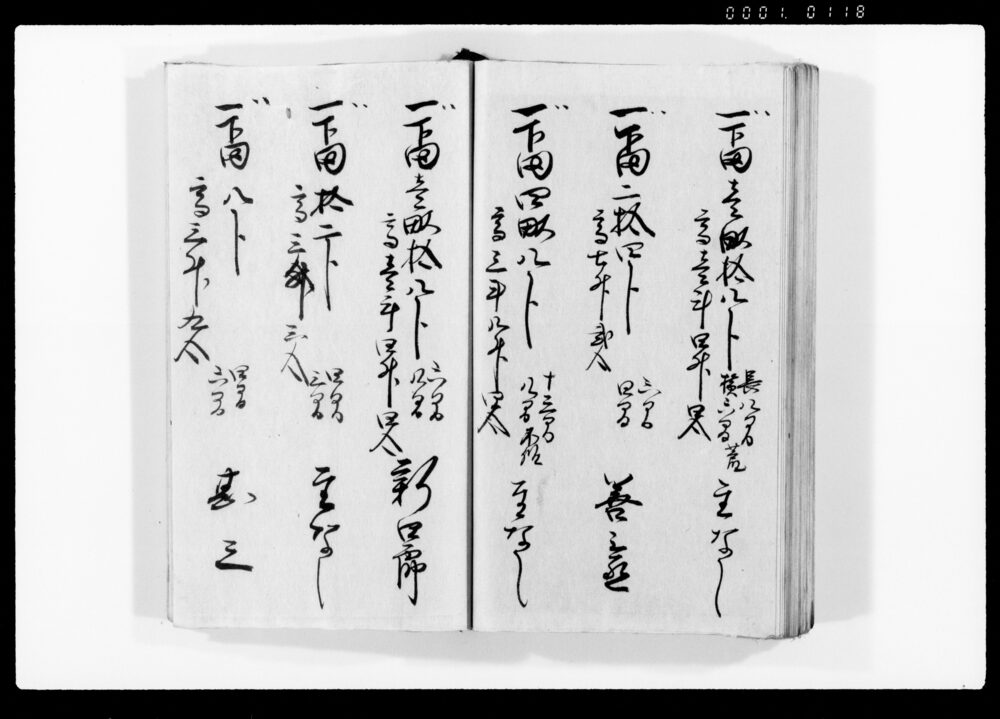 0001. 0118
一下田壱畝拾八卜 長八間 横六間 荒 主なし
高壱斗四升四合
一下田二拾四卜 六間 四間 善
高七升弐合
一下田四畝八卜 十六間 八間 主なし
高三斗八升四合
一下田壱畝拾八卜 六間 八間 新四郎
高壱斗四升四合
一下田拾二卜 四間 三間 主なし
高三升六合
一下田八卜 四間 二間 甚三
高二升四合